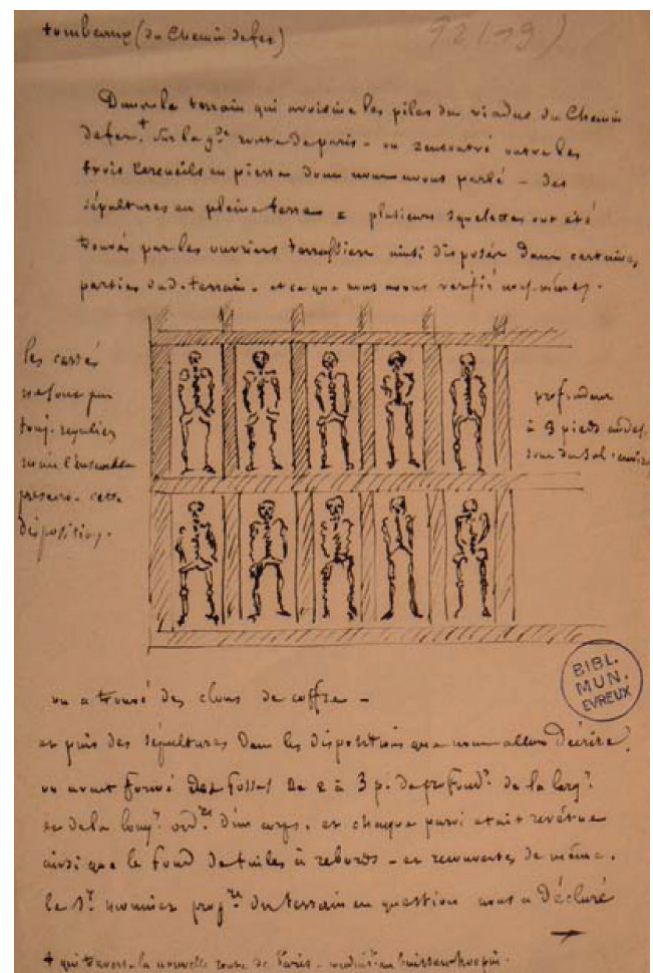 tombeaux (du Chemin de fer)
Dans le terrain qui avoisine les piles du viaduc du Chemin
de fer + sur la g.de route de paris - on a rencontré outre les
trois cercueils en pierre dont nous avons parlé - des
sépultures en pleine terre = plusieurs squelettes ont été
trouvés par les ouvriers terrassiers ainsi disposés dans certaines
parties dud. terrain - et ce que nous avons vérifié nous mêmes.
les carrés
ne sont pas
touj. reguliers
mais l'ensemble
presente cette
disposition.
profondeur
à 3 pieds au des
sous du sol environ
BIBL.
MUN.
EVREUX
on a trouvé des clous de coffre -
et puis des sépultures dans les dispositions que nous allons décrire.
on avait formé des fosses de 2 à 3 p. de profond.r de la larg.r
et de la long.r ord.re d'un corps. et chaque paroi etait revêtue
ainsi que le fond de tuiles à rebords - et recouvertes de même.
le S.r prop.re du terrain en question nous a déclaré
+ qui traverse la nouvelle route de Paris -